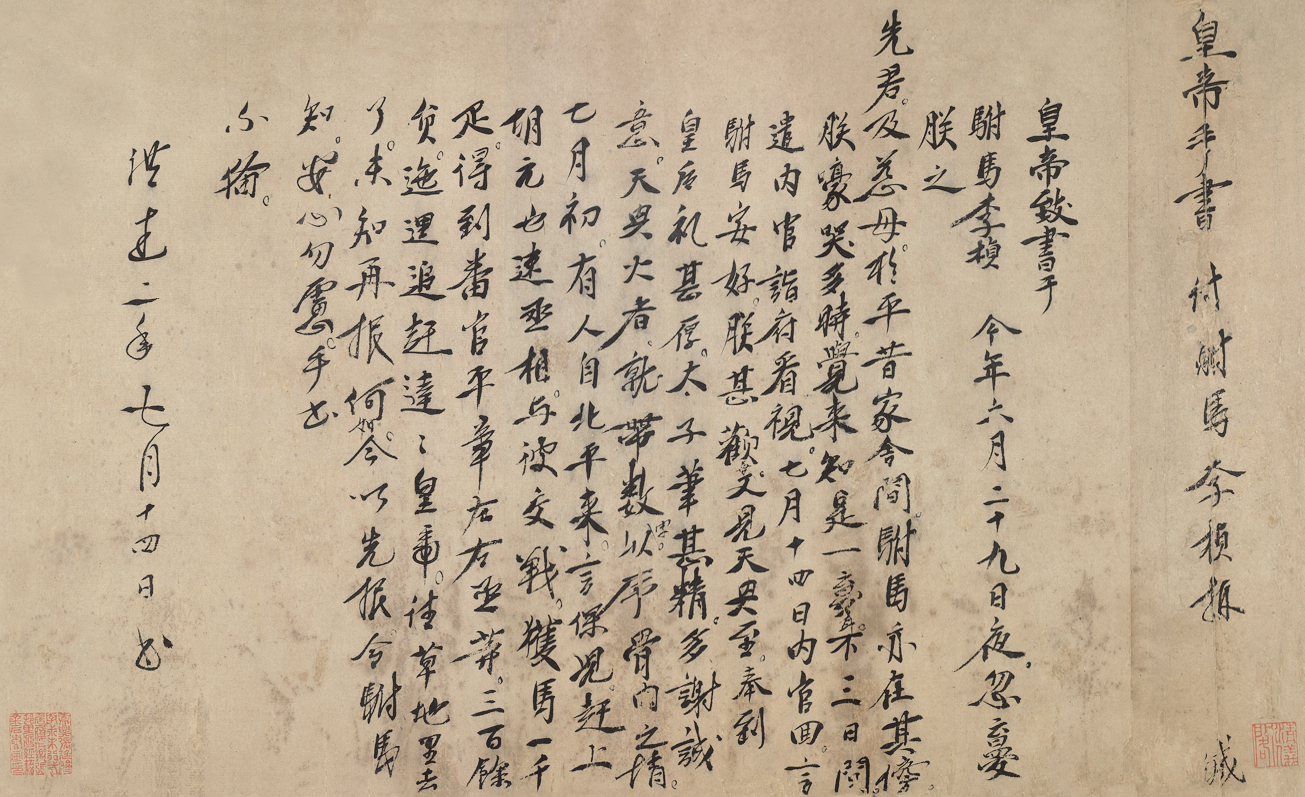 皇帝手書 付駙馬李楨親 緘
皇帝致書于
駙馬李楨 今年六月二十九日夜。忽夢
朕之
先君。及慈母。於平昔家舍間。駙馬亦在其傍。
朕豪哭多時。覺來知是一夢耳。不三日間。
遣内官詣府看視。七月十四日内官回。言
駙馬安好。朕甚歡。又見天與至。奉到
皇后礼甚厚。太子筆甚精。多謝誠
意。天與火者。就帶數物。以序骨肉之情。
七月初。有人自北平来。言保児赶上
胡元也速丞相。与彼交戰。獲馬一千
疋。得到番官平章左右丞等。三百餘
貟。迤逦追赶達〻皇帝。往草地里去
了。未知再报何如。今以先报令駙馬
知。安心勿慮。手书
不偹。
洪武二年七月十四日书